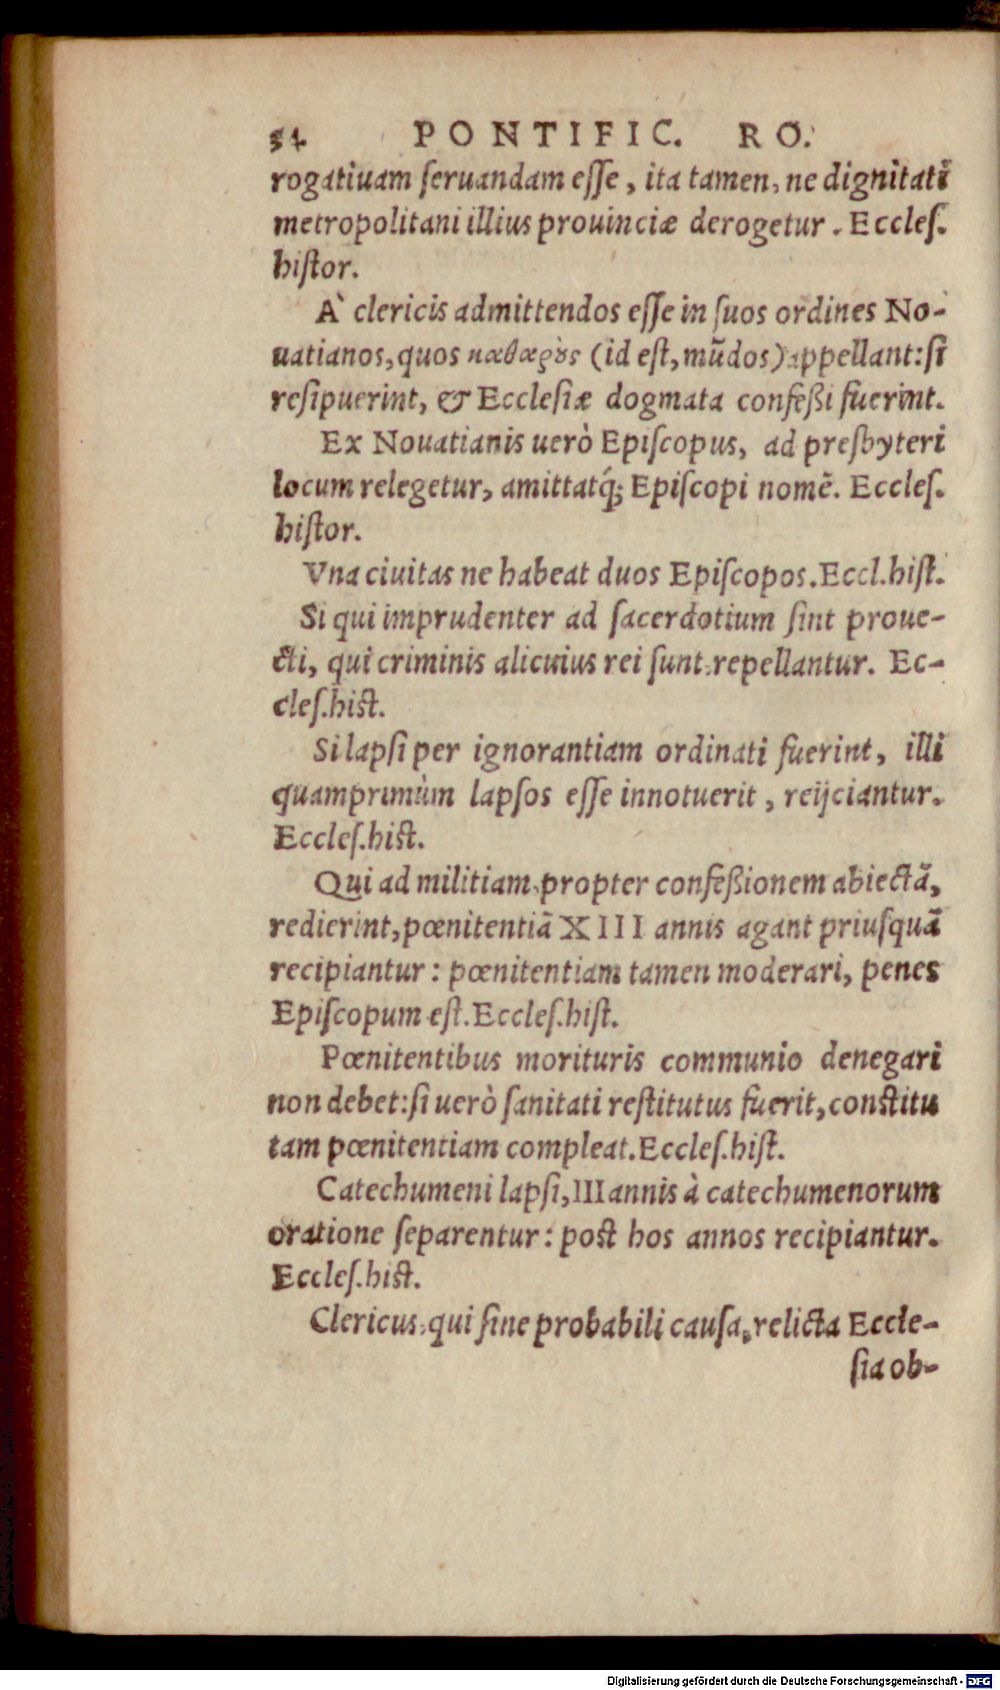 54 PONTIFIC. RO.
rogatiuam ſeruandam eſſe, ita tamen, ne dignitati
metropolitani illius prouinciæ derogetur. Eccleſ.
hiſtor.
À clericis admittendos eſſe in ſuos ordines No-
uatianos, quos καθαροὺς (id eſt, mũdos) appellant: ſi
reſipuerint, & Eccleſiæ dogmata confeßi fuerint.
Ex Nouatianis uerò Epiſcopus, ad preſbyteri
locum relegetur, amittatq́; Epiſcopi nomẽ. Eccleſ.
hiſtor.
Vna ciuitas ne habeat duos Epiſcopos. Eccl. hiſt.
Si qui imprudenter ad ſacerdotium ſint proue-
cti, qui criminis alicuius rei ſunt, repellantur. Ec-
cleſ. hiſt.
Si lapſi per ignorantiam ordinati fuerint, illi
quamprimùm lapſos eſſe innotuerit, reijciantur.
Eccleſ. hiſt.
Qui ad militiam, propter confeßionem abiectã,
redierint, pœnitentiã XIII annis agant priuſquã
recipiantur: pœnitentiam tamen moderari, penes
Epiſcopum eſt. Eccleſ. hiſt.
Pœnitentibus morituris communio denegari
non debet: ſi uerò ſanitati reſtitutus fuerit, conſtitu
tam pœnitentiam compleat. Eccleſ. hiſt.
Catechumeni lapſi, III annis à catechumenorum
oratione ſeparentur: poſt hos annos recipiantur.
Eccleſ. hiſt.
Clericus, qui ſine probabili cauſa, relicta Eccle-
ſia ob-
Digitalisierung gefördert durch die Deutsche Forschungsgemeinschaft - DFG